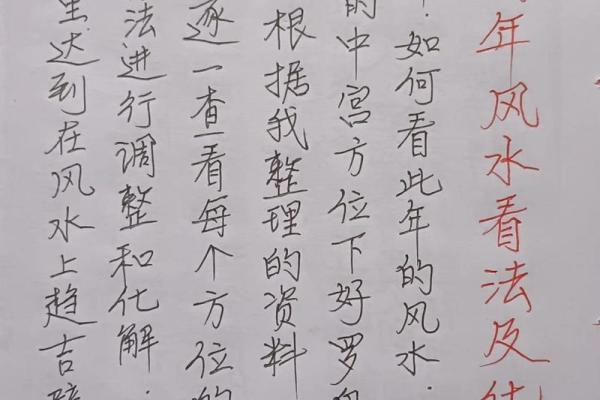 年风水看法及
如何看此年的风水.
的中宫方位下好罗
根据我整理的资料
逐一查看每个方位的
法进行调整和化解.
达到在风水上趋吉